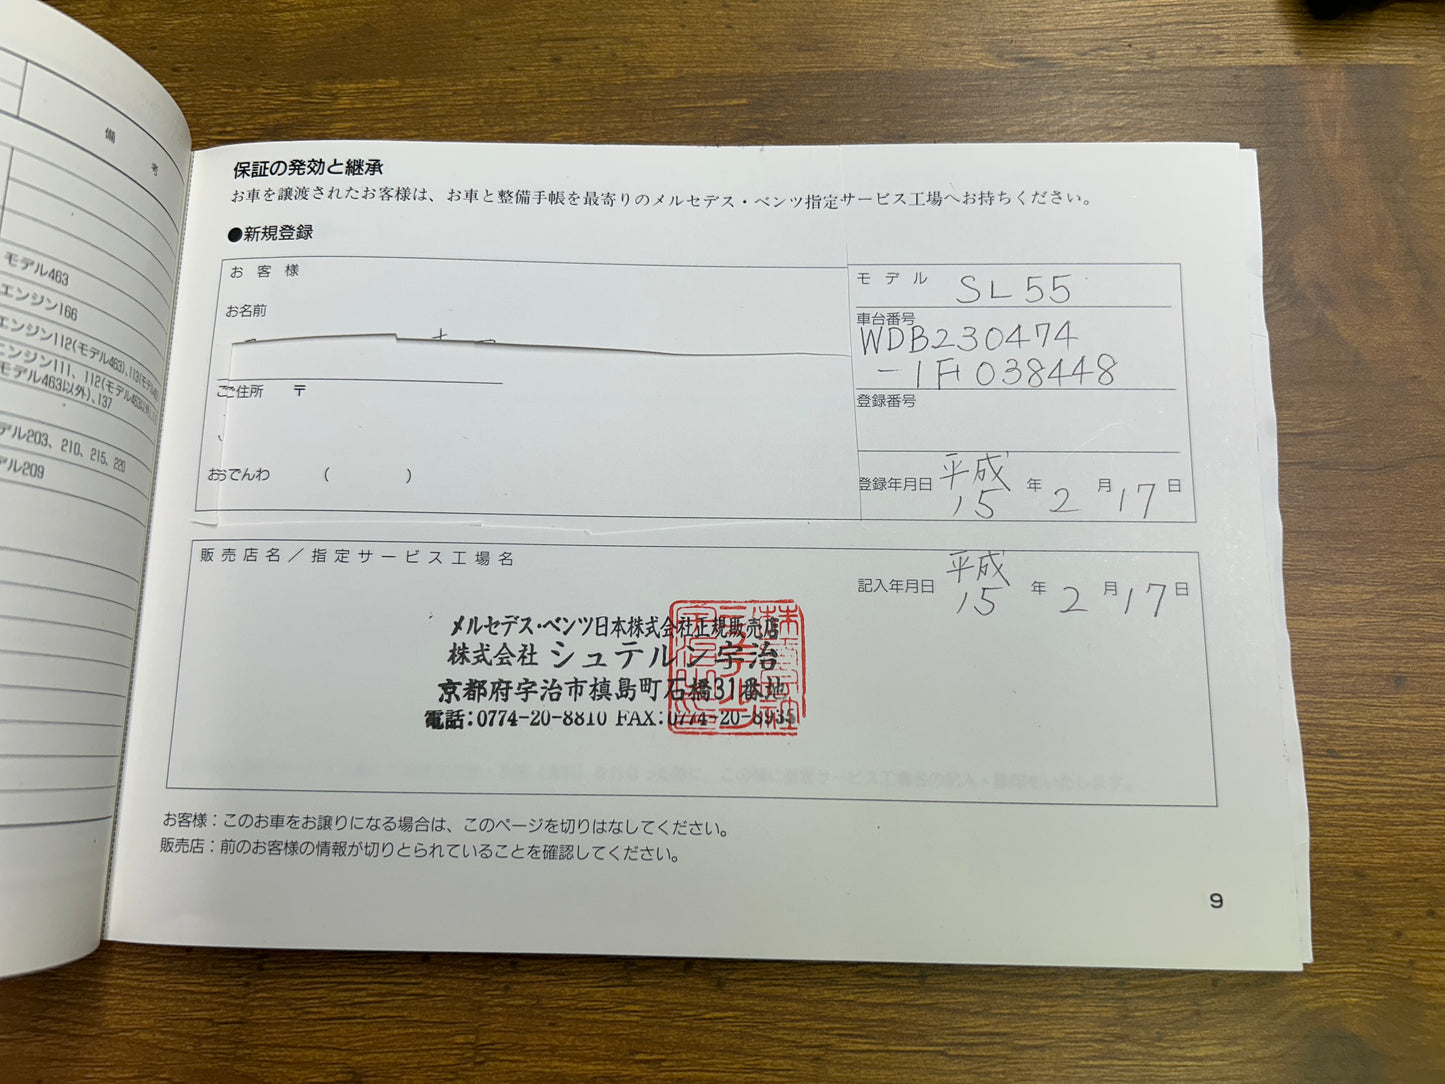 備 考
モデル463
エンジン166
エンジン112(モデル463)、113(モデル
エンジン111、112(モデル463以外)
モデル463以外)、137
デル203、210、215、220
デル209
保証の発効と継承
お車を譲渡されたお客様は、お車と整備手帳を最寄りのメルセデス・ベンツ指定サービス工場へお持ちください。
●新規登録
お客様
お名前
ご住所 〒
おでんわ ( )
モデル SL55
車台番号
WDB230474
-1F038448
登録番号
登録年月日 平成15年2月17日
販売店名／指定サービス工場名
記入年月日 平成15年2月17日
メルセデス・ベンツ日本株式会社正規販売店
株式会社 シュテルン宇治
京都府宇治市槙島町石橋31番地
電話：0774-20-8810 FAX：0774-20-8935
お客様：このお車をお譲りになる場合は、このページを切りはなしてください。
販売店：前のお客様の情報が切りとられていることを確認してください。
9